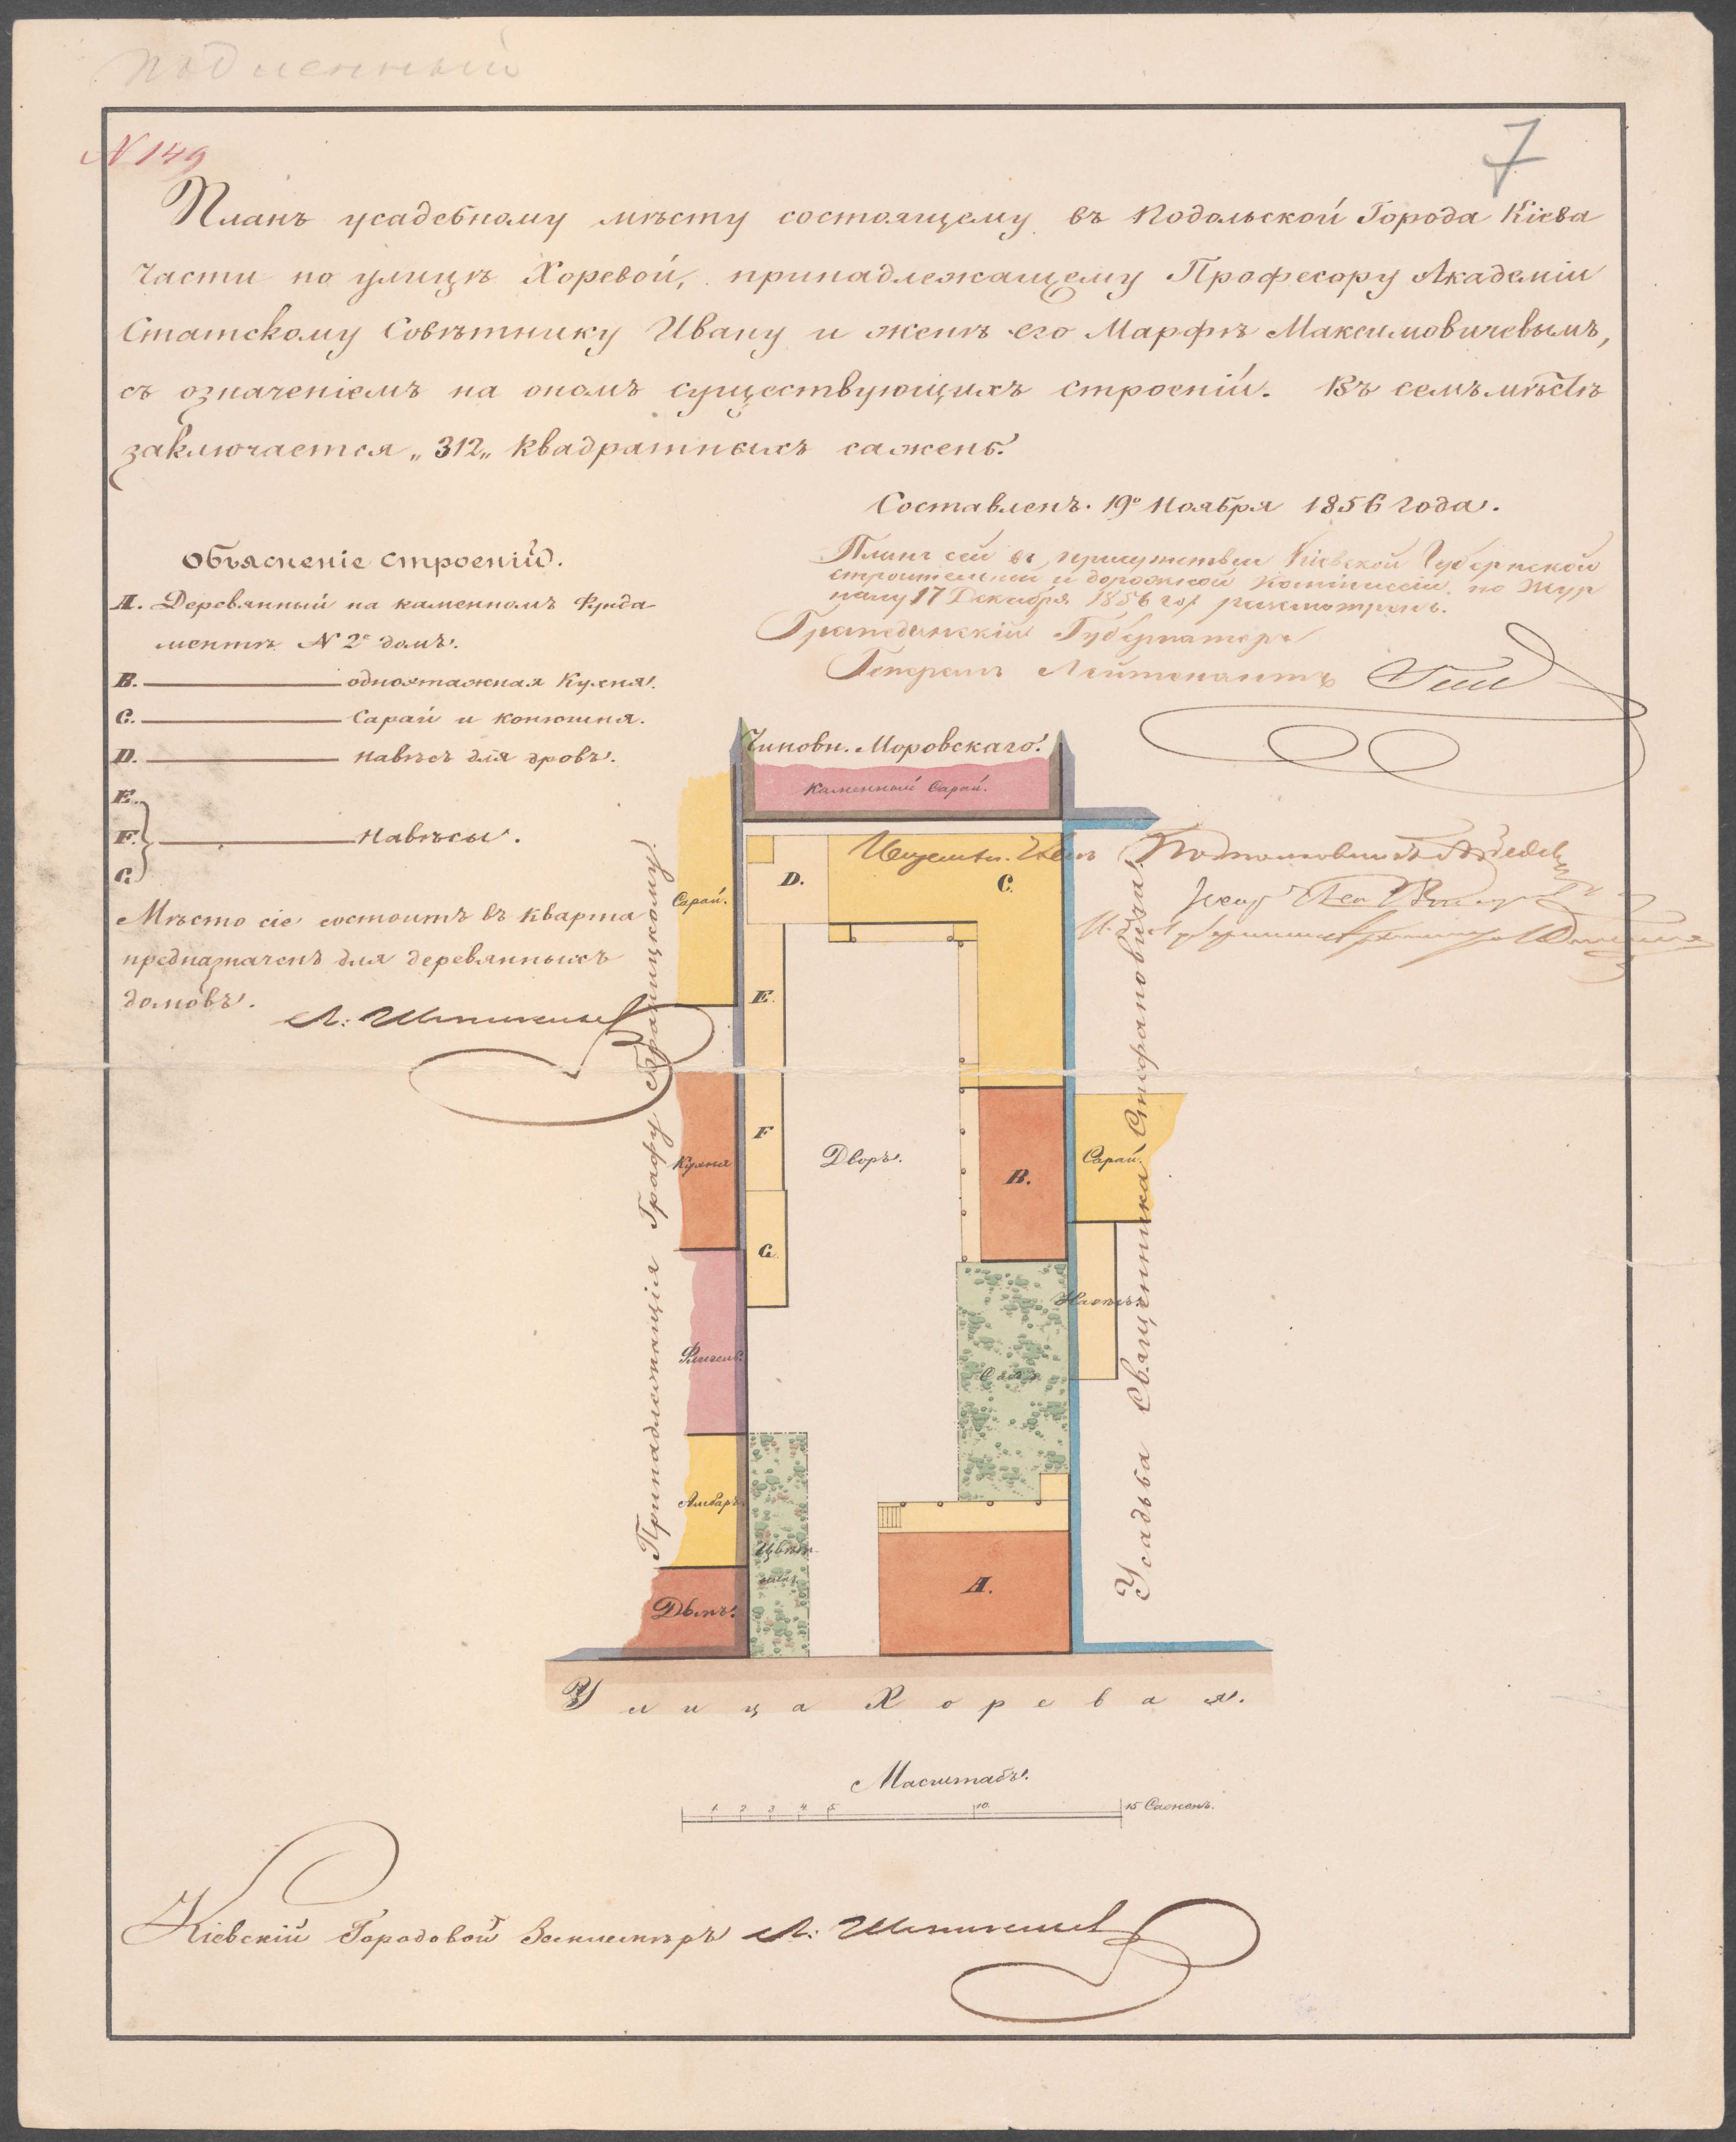 подленный
N 149
7
Планъ усадебному мѣсту состоящему въ Подольской Города Кіева
Части по улицѣ Хоревой, принадлежащему Професору Академіи
Статскому Совѣтнику Ивану и женѣ его Марфѣ Максимовичевымъ,
съ означеніемъ на ономъ существующихъ строеній. Въ семъ мѣстѣ
заключается „312„ квадратныхъ сажень.
Составленъ 19º Ноября 1856 года.
Объясненіе строеній.
A. Деревянный на каменномъ Фунда
ментѣ N 2º домъ.
B. одноэтажная Кухня.
C. Сарай и конюшня.
D. навѣсъ для дровъ.
E.
F. Навѣсы.
G.
Мѣсто сіе состоитъ въ кварта
предназначенъ для деревянныхъ
домовъ.
Планъ сей въ присутствіи Кіевской Губернской
строительной и дорожной Коммиссіи, по Жур
налу 17 Декабря 1856 год разсмотренъ.
Гражданскій Губернаторъ
Генералъ Лейтенантъ
Чиновн. Моровскаго.
Каменный Сарай.
D.
C.
Сарай.
E.
F
Дворъ.
Кухня
B.
Сарай.
G.
Навѣсъ.
Флигель.
Садъ
Амбаръ
Цвѣт
никъ
A.
Домъ.
Принадлежащія Графу Браницкому.
Усадьба Священника Стефановича.
Улица Хоревая.
Масштабъ.
1 2 3 4 5 10 15 Сажень.
Кіевскій Городовой Землемѣръ